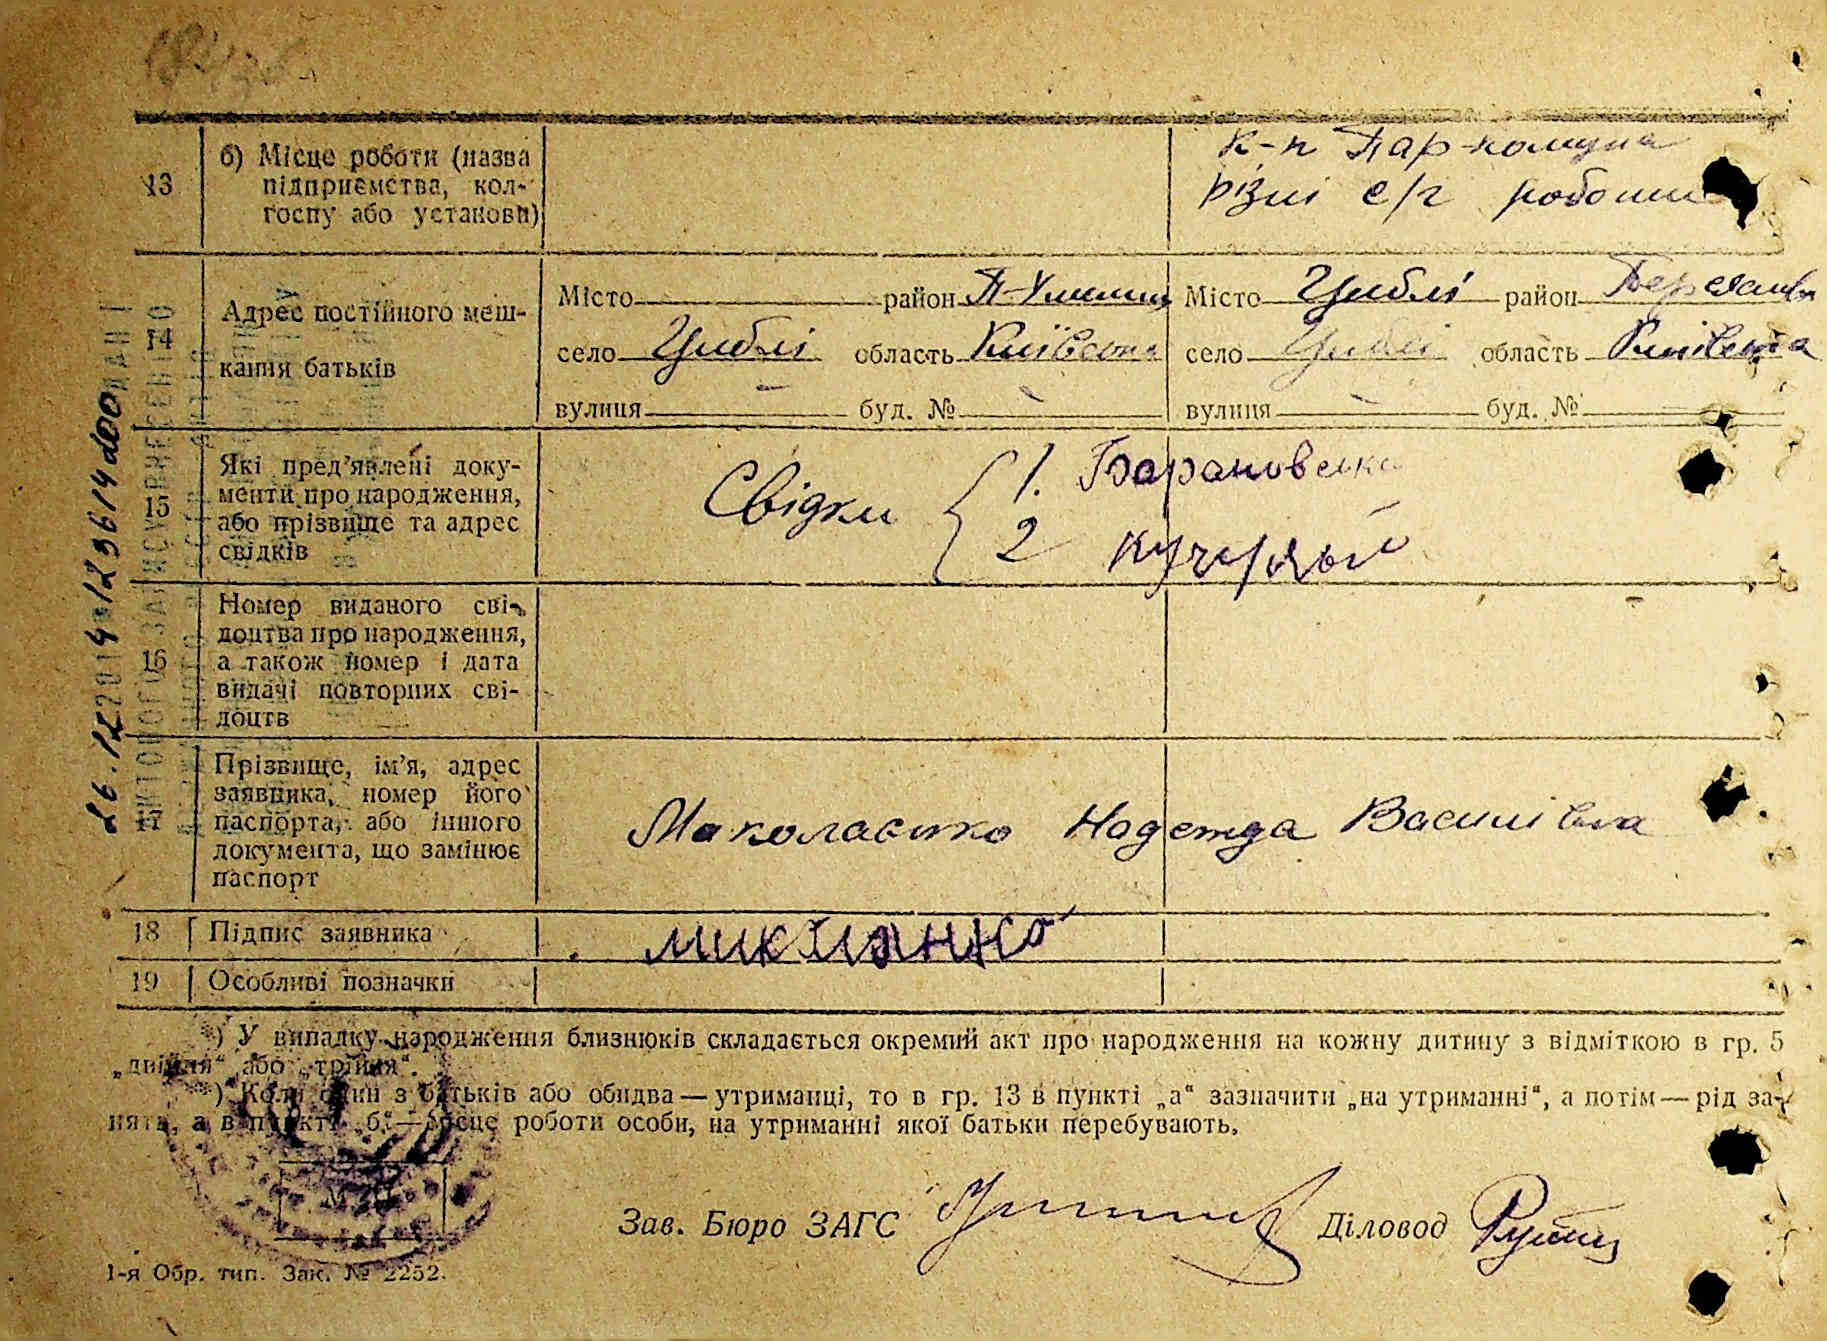 13
б) Місце роботи (назва
підприємства, кол-
госпу або установи)
к-п Пар-комуна
різні с/г роботи
14
Адрес постійного меш-
кання батьків
Місто район
Місто Циблі район
село Циблі область Київська
село Циблі область Київська
вулиця — буд. № —
вулиця — буд. №
15
Які пред'явлені доку-
менти про народження,
або прізвище та адрес
свідків
Свідки
1. Барановська
2
16
Номер виданого сві-
доцтва про народження,
а також номер і дата
видачі повторних сві-
доцтв
17
Прізвище, ім'я, адрес
заявника, номер його
паспорта, або іншого
документа, що замінює
паспорт
Надежда Василівна
18 Підпис заявника
19 Особливі позначки
*) У випадку народження близнюків складається окремий акт про народження на кожну дитину з відміткою в гр. 5
„двійня“ або „трійня“.
**) Коли один з батьків або обидва — утриманці, то в гр. 13 в пункті „а“ зазначити „на утриманні“, а потім — рід за-
нять, а в пункті „б“ — місце роботи особи, на утриманні якої батьки перебувають.
М. П.
Зав. Бюро ЗАГС
Діловод
1-я Обр. тип. Зак. № 2252.